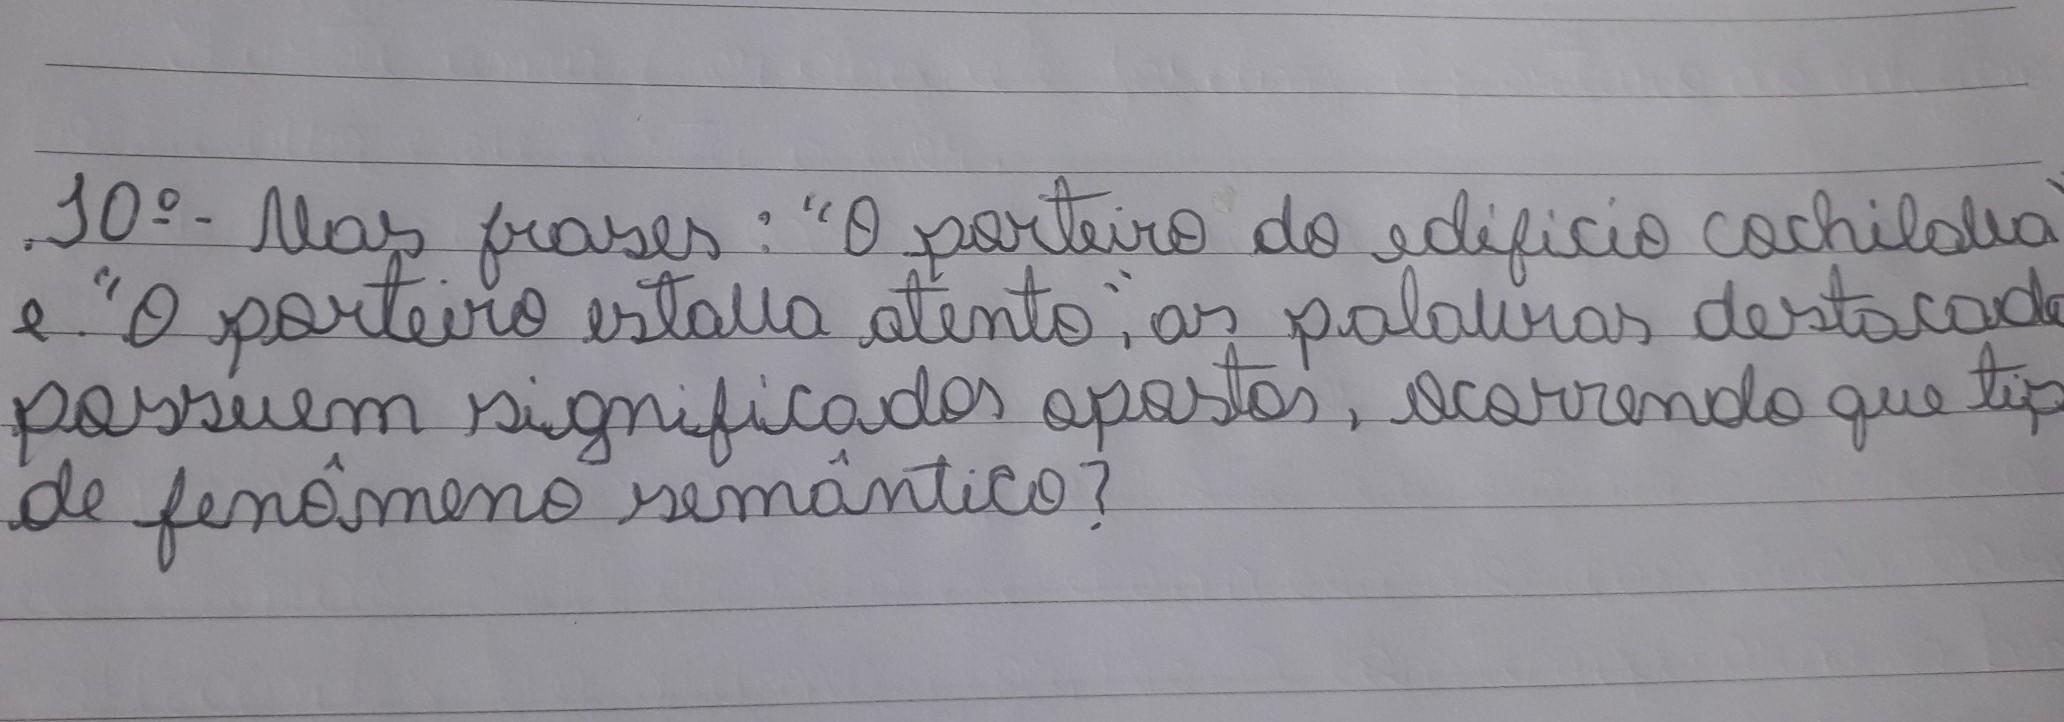 10º- Nas frases: "O porteiro do edifício cochilava"
e "O porteiro estava atento", as palavras destacada
possuem significados opostos, ocorrendo que tip
de fenômeno semântico?